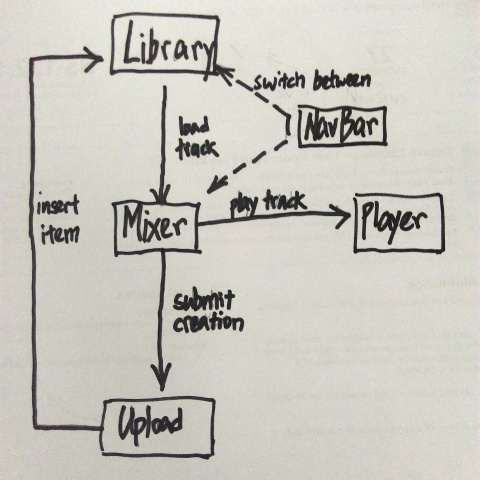 Library
switch between
NavBar
load
track
insert
item
Mixer
play track
Player
submit
creation
Upload